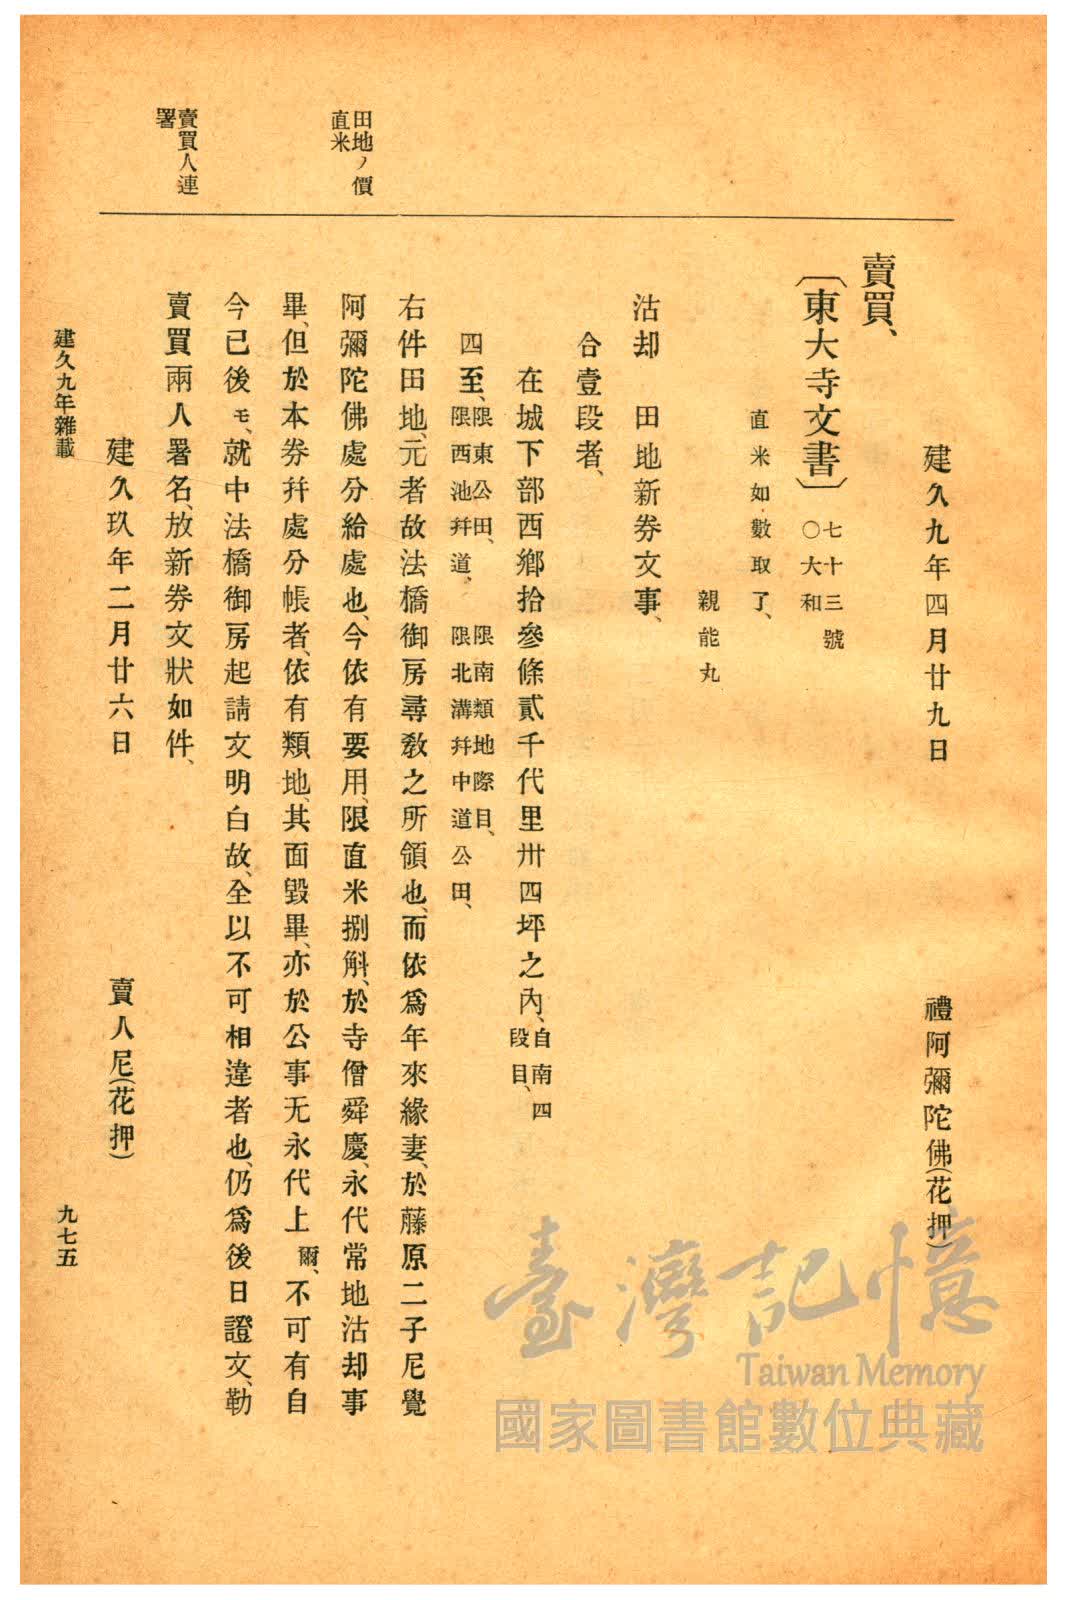 田地ノ價
直米
賣買人連
署
建久九年四月廿九日　　禮阿彌陀佛(花押)
賣買、
〔東大寺文書〕七十三號
○大和
直米如數取了、
親能丸
沽却　田地新券文事、
合壹段者、
在城下郡西鄉拾參條貳千代里卅四坪之內、自南四
段目、
四至、限東公田、　限南類地際目、
限西池幷道、　限北溝幷中道公田、
右件田地、元者故法橋御房尋敎之所領也、而依爲年來緣妻、於藤原二子尼覺
阿彌陀佛處分給處也、今依有要用、限直米捌斛、於寺僧舜慶、永代常地沽却事
畢、但於本券幷處分帳者、依有類地、其面毀畢、亦於公事无永代上爾、不可有自
今已後モ、就中法橋御房起請文明白故、全以不可相違者也、仍爲後日證文、勒
賣買兩人署名、放新券文狀如件、
建久玖年二月廿六日　　賣人尼(花押)
建久九年雜載
九七五
臺灣記憶
Taiwan Memory
國家圖書館數位典藏